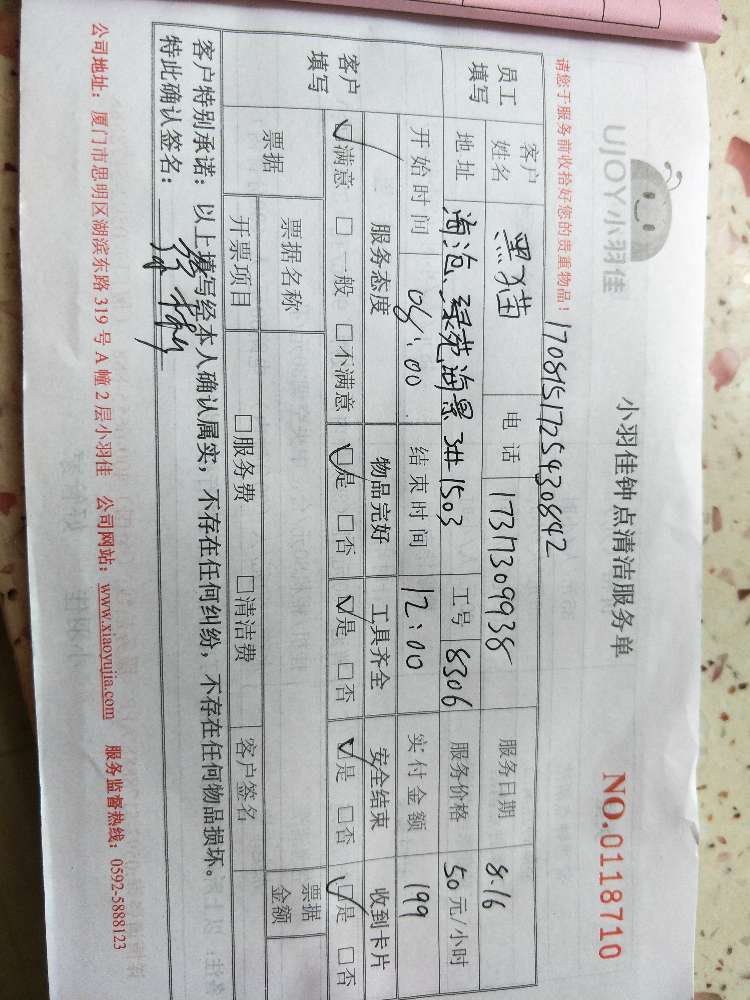 UJOY小羽佳
小羽佳钟点清洁服务单
NO.0118710
请您于服务前收拾好您的贵重物品！
1708151725430842
员工填写
客户姓名 黑猫 电话 17317309938 服务日期 8.16
地址 海沧、绿苑海景3#1503 工号 8306 服务价格 50元/小时
开始时间 08:00 结束时间 12:00 实付金额 199
客户填写
服务态度 物品完好 工具齐全 安全结束 收到卡片
☑满意 □一般 □不满意 ☑是 □否 ☑是 □否 ☑是 □否 ☑是 □否
票据 票据名称 票据金额
开票项目 □服务费 □清洁费 客户签名
客户特别承诺：以上填写经本人确认属实，不存在任何纠纷，不存在任何物品损坏。
特此确认签名：
公司地址：厦门市思明区湖滨东路319号A幢2层小羽佳 公司网站：www.xiaoyujia.com 服务监督热线：0592-5888123